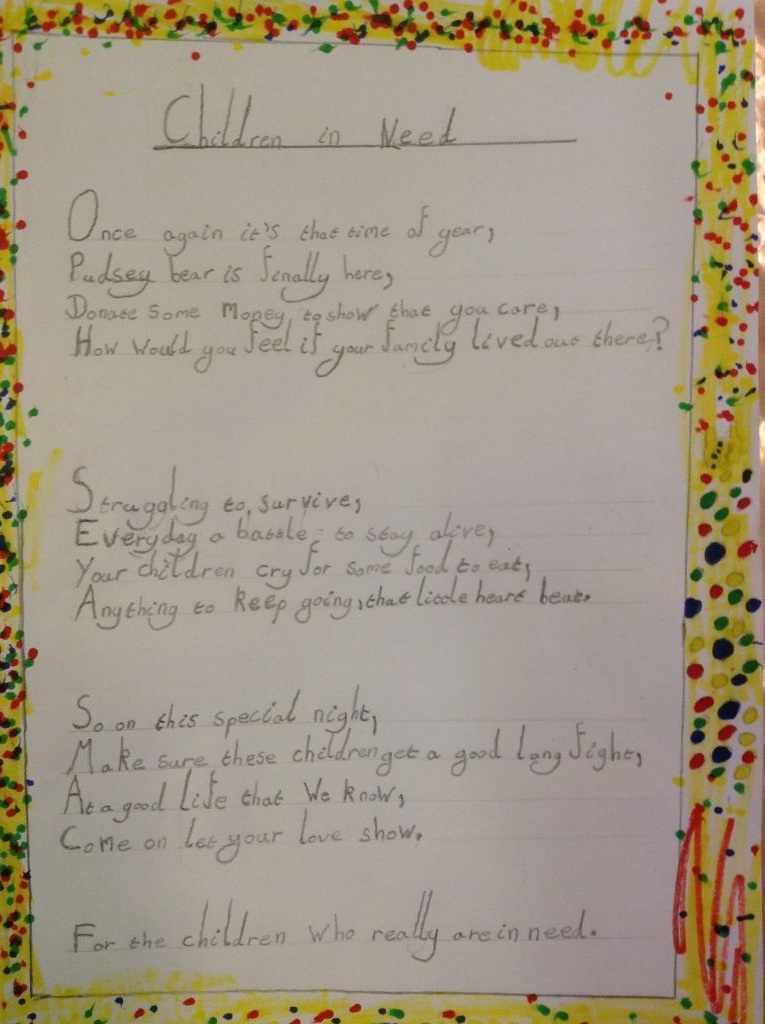 Children in Need
Once again it's that time of year,
Pudsey bear is finally here,
Donate some money, to show that you care,
How would you feel if your family lived out there?
Struggling to, survive,
Everyday a battle to stay alive,
Your children cry for some food to eat,
Anything to keep going, that little heart beat.
So on this special night,
Make sure these children get a good long fight,
At a good life that we know,
Come on let your love show.
For the children who really are in need.